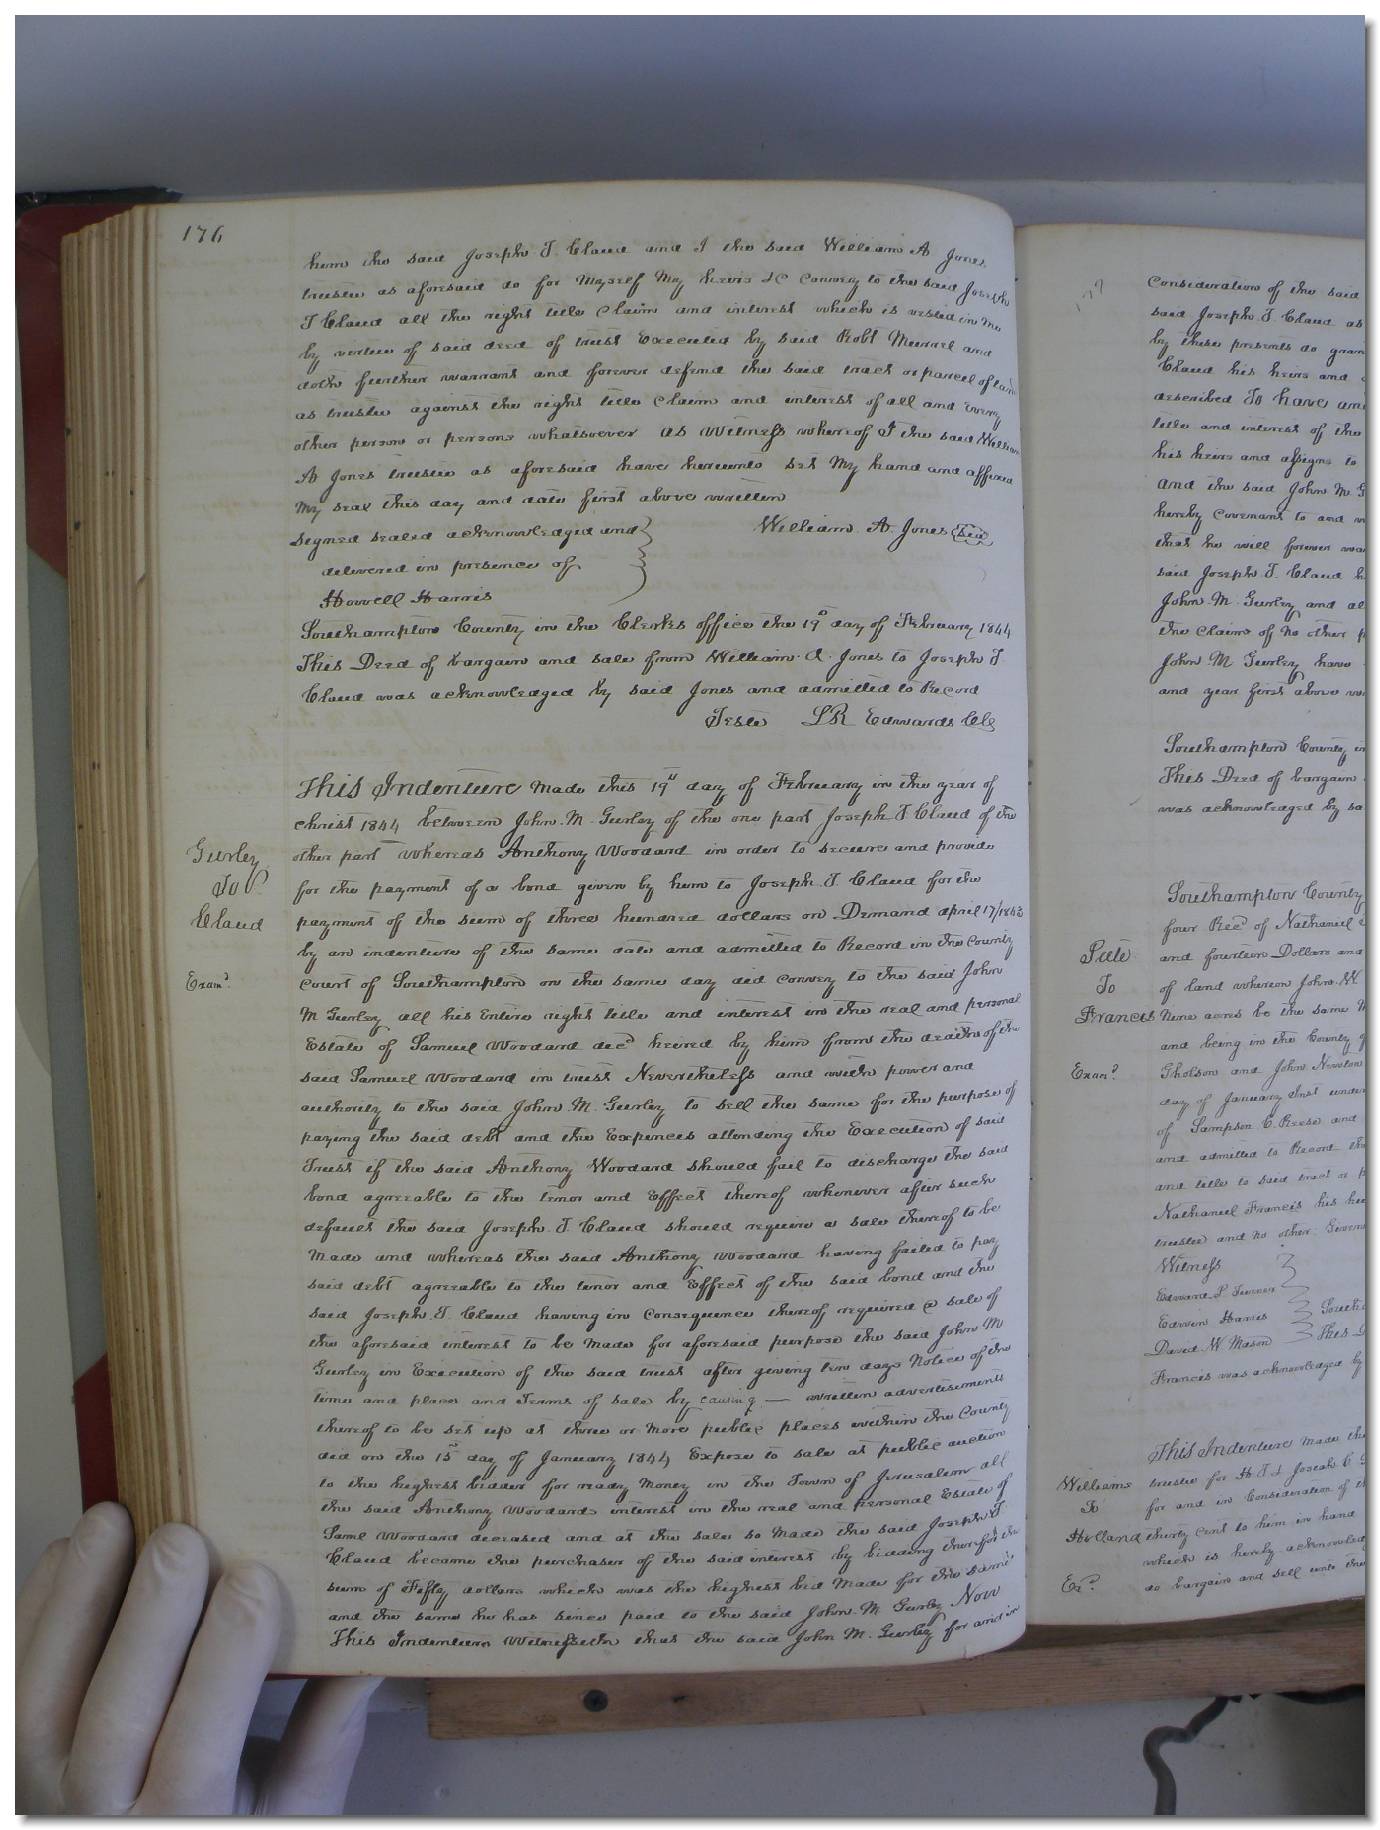 176
him the said Joseph T. Claud and I the said William A Jones
trustee as aforesaid do for Myself My heirs &c Convey to the said Joseph
T Claud all the right title Claim and interest which is vested in me
by vertue of said deed of trust Executed by said Robt Murrel and
doth further warrant and forever defend the said tract or parcel of land
as trustee against the right title Claim and interest of all and Every
other person or persons whatsoever as Witness whereof I the said William
A Jones trustee as aforesaid have hereunto set My hand and affixed
My seal this day and date first above written
Signed sealed acknowledged and William A. Jones Seal
delivered in presence of
Howell Harris
Southampton County in the Clerkes office the 19th day of February 1844
This Deed of bargain and sale from William A. Jones to Joseph T
Claud was acknowledged by said Jones and admitted to Record
Teste LR Edwards Clk
This Indenture Made this 19th day of February in the year of
Christ 1844 between John. M. Gurley of the one part Joseph T Claud of the
Gurley
To
Claud
Exam.d
other part Whereas Anthony Woodard in order to secure and provide
for the payment of a bond given by him to Joseph. T. Claud for the
payment of the sum of three hundred dollars on Demand april 17/1843
by an indenture of the same date and admitted to Record in the County
Court of Southampton on the same day did Convey to the said John
M Gurley all his Entire right title and interest in the real and personal
Estate of Samuel Woodard decd heired by him from the death of the
said Samuel Woodard in trust Nevertheless and with power and
authority to the said John. M. Gurley to sell the same for the purpose of
paying the said debt and the Expences attending the Execution of said
Trust if the said Anthony Woodard should fail to discharge the said
bond agreeable to the tenor and Effect thereof whenever after such
default the said Joseph. T. Claud should require a sale thereof to be
Made and whereas the said Anthony Woodard having failed to pay
said debt agreeable to the tenor and Effect of the said bond and the
said Joseph. T. Claud having in Consequence thereof required @ sale of
the aforesaid interest to be Made for aforesaid purpose the said John M
Gurley in Execution of the said trust after giving ten days Notice of the
time and place and Terms of sale by causing — written advertisements
thereof to be set up at three or More public places within the County
did on the 15th day of January 1844 Expose to sale at public auction
to the highest bidder for ready Money in the Town of Jerusalem all
the said Anthony Woodards interest in the real and personal Estate of
Saml Woodard deceased and at the sale so Made the said Joseph T.
Claud became the purchaser of the said interest by bidding therefor the
sum of Fifty dollars which was the highest bid Made for the same
and the same he has since paid to the said John. M Gurley Now
This Indenture Witnesseth that the said John M. Gurley for and in
177
Consideration of the said
said Joseph. T. Claud as
by these presents do gran
Claud his heirs and
described To have an
title and interest of the
his heirs and assigns to
and the said John M. G
hereby Covenant to and
that he will forever wa
said Joseph. T. Claud h
John. M. Gurley and al
the Claim of No other p
John M Gurley have
and year first above w
Southampton County in
This Deed of bargain
was acknowledged by sa
Southampton County
four Recd of Nathaniel
Pate
To
Francis
Exam.d
and fourteen Dollars and
of land whereon John. W
Nine acres be the same M
and being in the County of
Gholson and John Newton
day of January Inst under
of Sampson C. Reese and
and admitted to Record the
and title to said tract or p
Nathaniel Francis his hei
trustee and no other. Given
Witness
Edward S Turner
Edwin Harris Southa
David. W. Mason This D
Francis was acknowledged by
This Indenture Made the
Williams
To
Holland
Ex.d
trustee for H. T & Josiah C
for and in Consideration of th
thirty Cent to him in hand
which is hereby acknowledg
do bargain and sell unto the